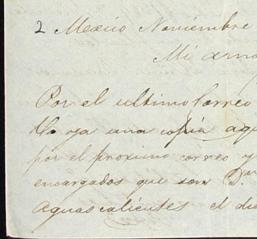 2 Mexico Noviembre
Mi amo
Por el ultimo Correo
ya una copia aqu
por el proximo correo y
encargados que son D.n
Aguascalientes el die